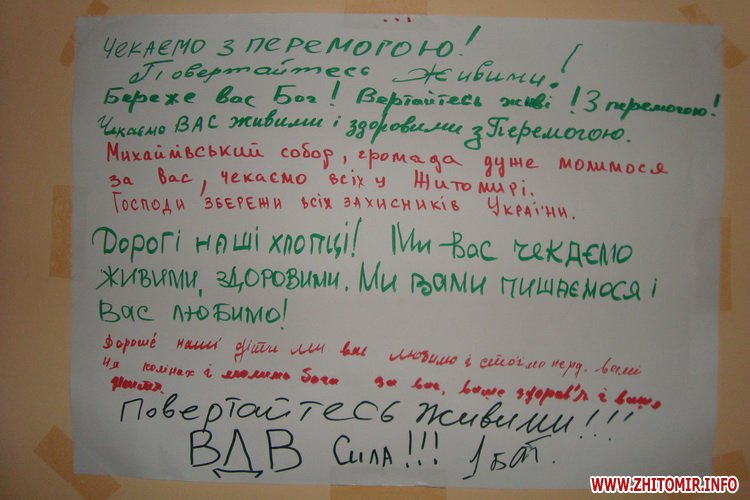 Чекаємо з перемогою!
Повертайтесь живими!
Береже вас Бог! Вертайтесь живі! З перемогою!
Чекаємо ВАС живими і здоровими з Перемогою.
Михайлівський собор, громада дуже молимося
за вас, чекаємо всіх у Житомирі.
Господи збережи всіх захисників України.
Дорогі наші хлопці! Ми вас чекаємо
живими, здоровими. Ми вами пишаємося і
Вас любимо!
наші діти ми вас любимо і стоїмо перд. вами
на колінах і молимо бога за вас, ваше здоров'я і ваше
Повертайтесь живими!!!
ВДВ Сила!!! 1 бат.
WWW.ZHITOMIR.INFO